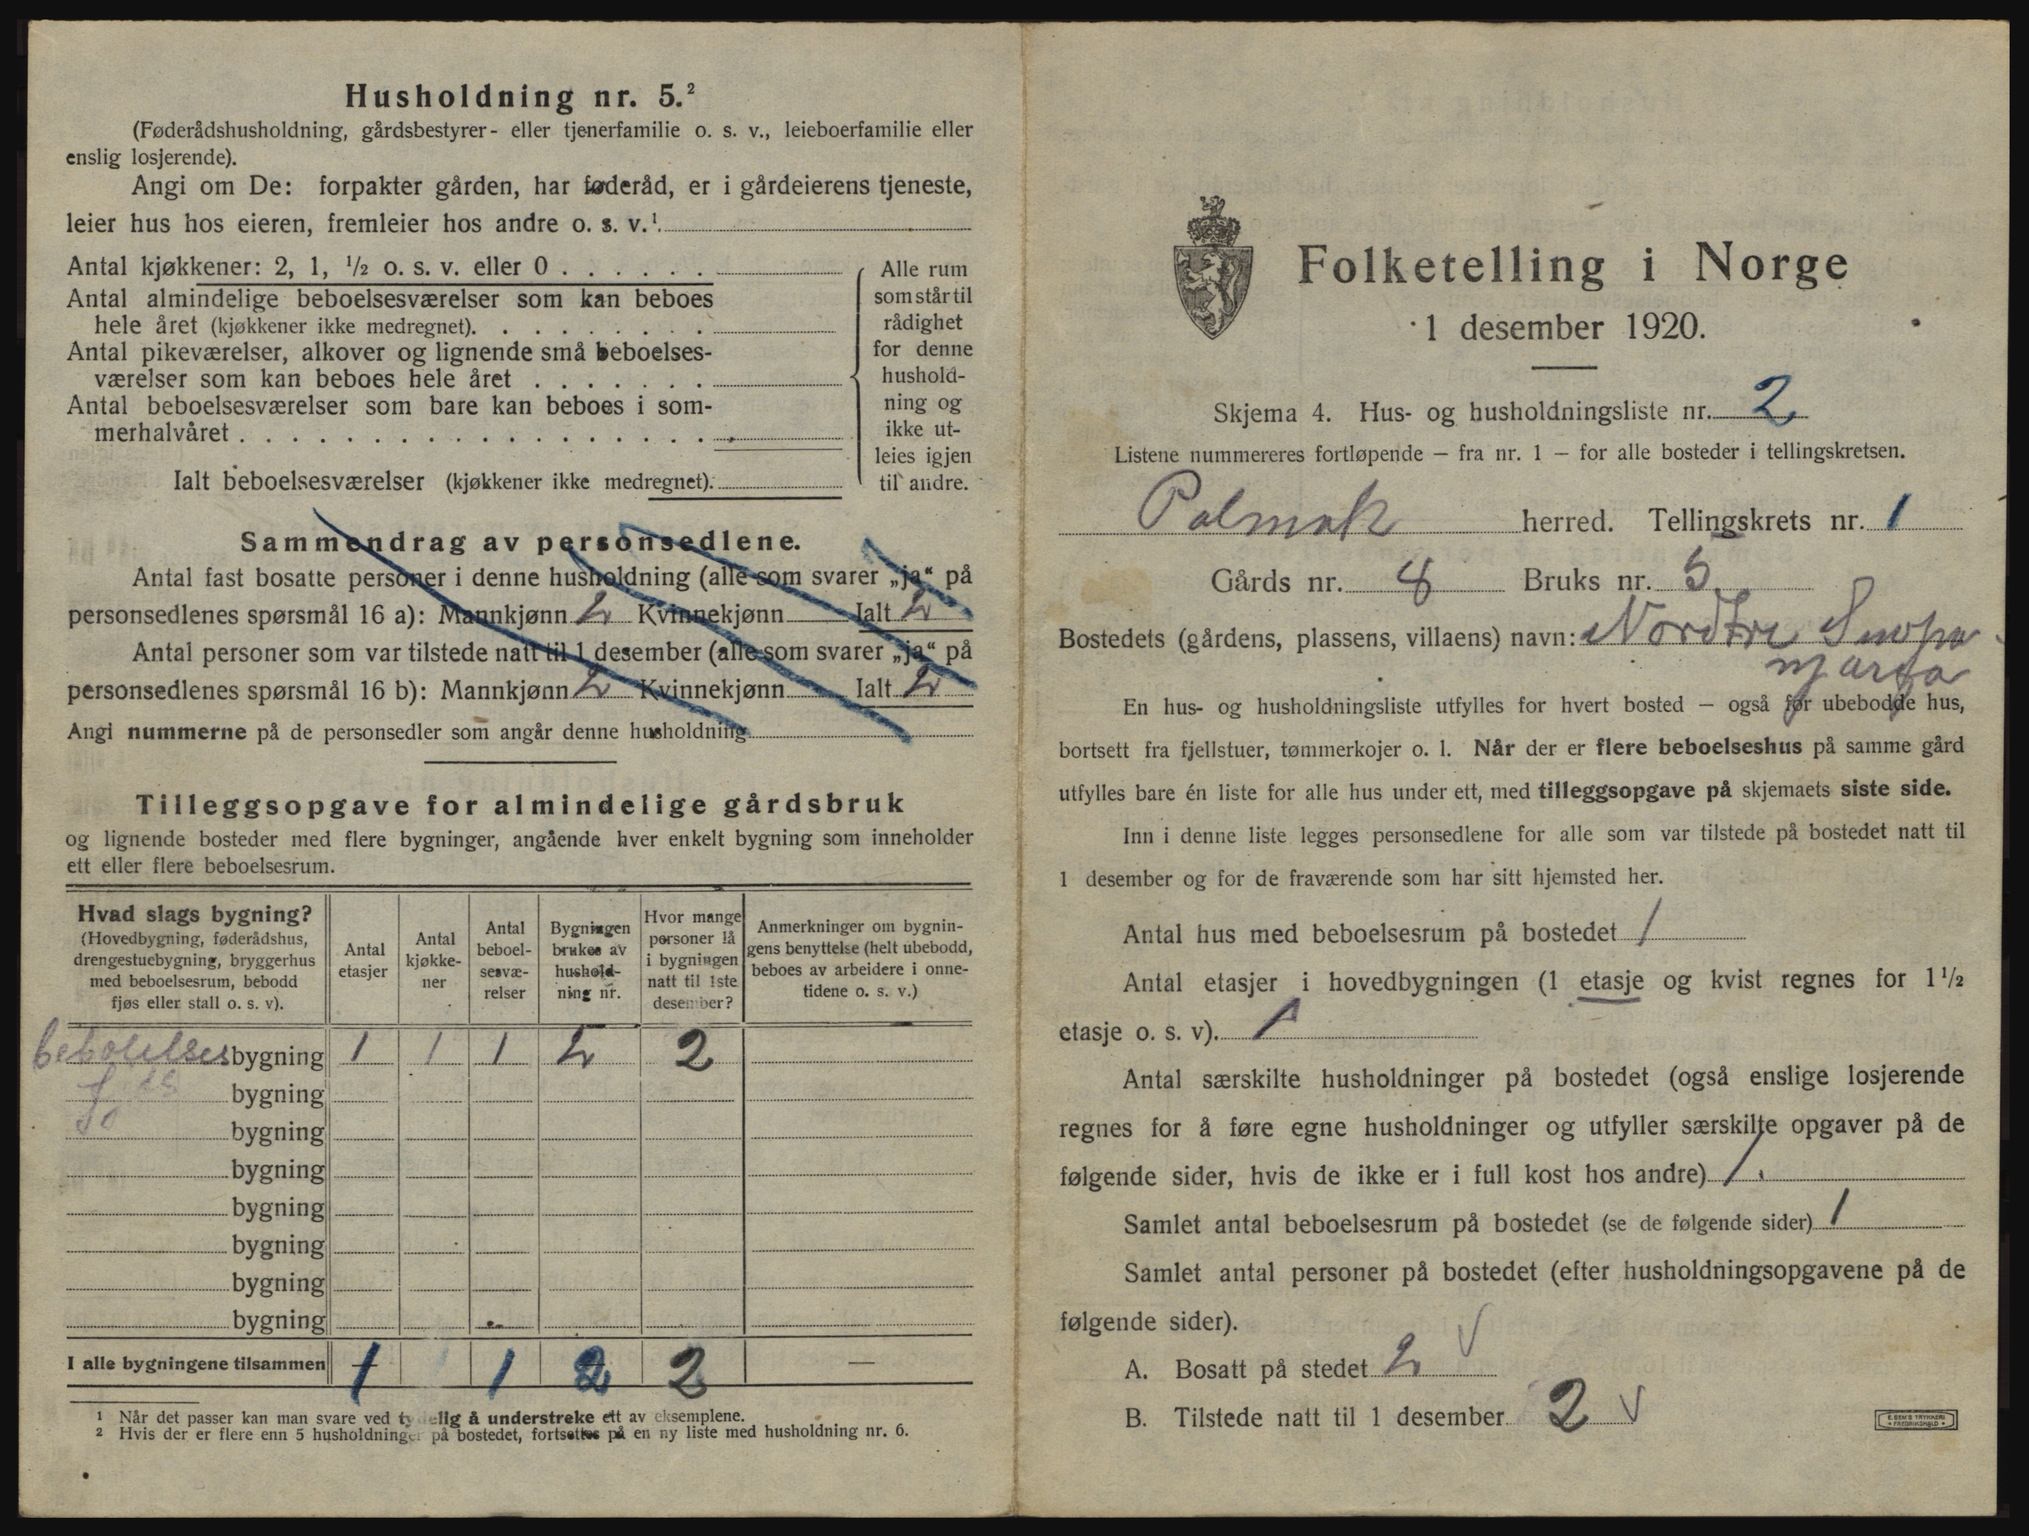 Husholdning nr. 5.²
(Føderådshusholdning, gårdsbestyrer- eller tjenerfamilie o. s. v., leieboerfamilie eller
enslig losjerende).
Angi om De: forpakter gården, har føderåd, er i gårdeierens tjeneste,
leier hus hos eieren, fremleier hos andre o. s. v.¹
Antal kjøkkener: 2, 1, ½ o. s. v. eller 0
Antal almindelige beboelsesværelser som kan beboes
hele året (kjøkkener ikke medregnet)
Antal pikeværelser, alkover og lignende små beboelses-
værelser som kan beboes hele året
Antal beboelsesværelser som bare kan beboes i som-
merhalvåret
Ialt beboelsesværelser (kjøkkener ikke medregnet)
Alle rum
som står til
rådighet
for denne
hushold-
ning og
ikke ut-
leies igjen
til andre.
Sammendrag av personsedlene.
Antal fast bosatte personer i denne husholdning (alle som svarer „ja“ på
personsedlenes spørsmål 16 a): Mannkjønn 2 Kvinnekjønn Ialt 2
Antal personer som var tilstede natt til 1 desember (alle som svarer „ja“ på
personsedlenes spørsmål 16 b): Mannkjønn 2 Kvinnekjønn Ialt 2
Angi nummerne på de personsedler som angår denne husholdning
Tilleggsopgave for almindelige gårdsbruk
og lignende bosteder med flere bygninger, angående hver enkelt bygning som inneholder
ett eller flere beboelsesrum.
Hvad slags bygning?
(Hovedbygning, føderådshus,
drengestuebygning, bryggerhus
med beboelsesrum, bebodd
fjøs eller stall o. s. v).
Antal
etasjer
Antal
kjøkke-
ner
Antal
beboel-
sesvæ-
relser
Bygningen
brukes av
hushold-
ning nr.
Hvor mange
personer lå
i bygningen
natt til 1ste
desember?
Anmerkninger om bygnin-
gens benyttelse (helt ubebodd,
beboes av arbeidere i onne-
tidene o. s. v.)
beboelses bygning 1 1 1 2 2
bygning
bygning
bygning
bygning
bygning
bygning
bygning
I alle bygningene tilsammen 1 1 1 2 2 —
¹ Når det passer kan man svare ved tydelig å understreke ett av eksemplene.
² Hvis der er flere enn 5 husholdninger på bostedet, fortsettes på en ny liste med husholdning nr. 6.
Folketelling i Norge
1 desember 1920.
Skjema 4. Hus- og husholdningsliste nr. 2
Listene nummereres fortløpende – fra nr. 1 – for alle bosteder i tellingskretsen.
Polmak herred. Tellingskrets nr. 1
Gårds nr. 8 Bruks nr. 5
Bostedets (gårdens, plassens, villaens) navn: Nordtre
njarga
En hus- og husholdningsliste utfylles for hvert bosted – også for ubebodde hus,
bortsett fra fjellstuer, tømmerkojer o. l. Når der er flere beboelseshus på samme gård
utfylles bare én liste for alle hus under ett, med tilleggsopgave på skjemaets siste side.
Inn i denne liste legges personsedlene for alle som var tilstede på bostedet natt til
1 desember og for de fraværende som har sitt hjemsted her.
Antal hus med beboelsesrum på bostedet 1
Antal etasjer i hovedbygningen (1 etasje og kvist regnes for 1½
etasje o. s. v). 1
Antal særskilte husholdninger på bostedet (også enslige losjerende
regnes for å føre egne husholdninger og utfyller særskilte opgaver på de
følgende sider, hvis de ikke er i full kost hos andre) 1.
Samlet antal beboelsesrum på bostedet (se de følgende sider) 1
Samlet antal personer på bostedet (efter husholdningsopgavene på de
følgende sider).
A. Bosatt på stedet 2 √
B. Tilstede natt til 1 desember 2 √
E. SEM'S TRYKKERI
FREDRIKSHALD